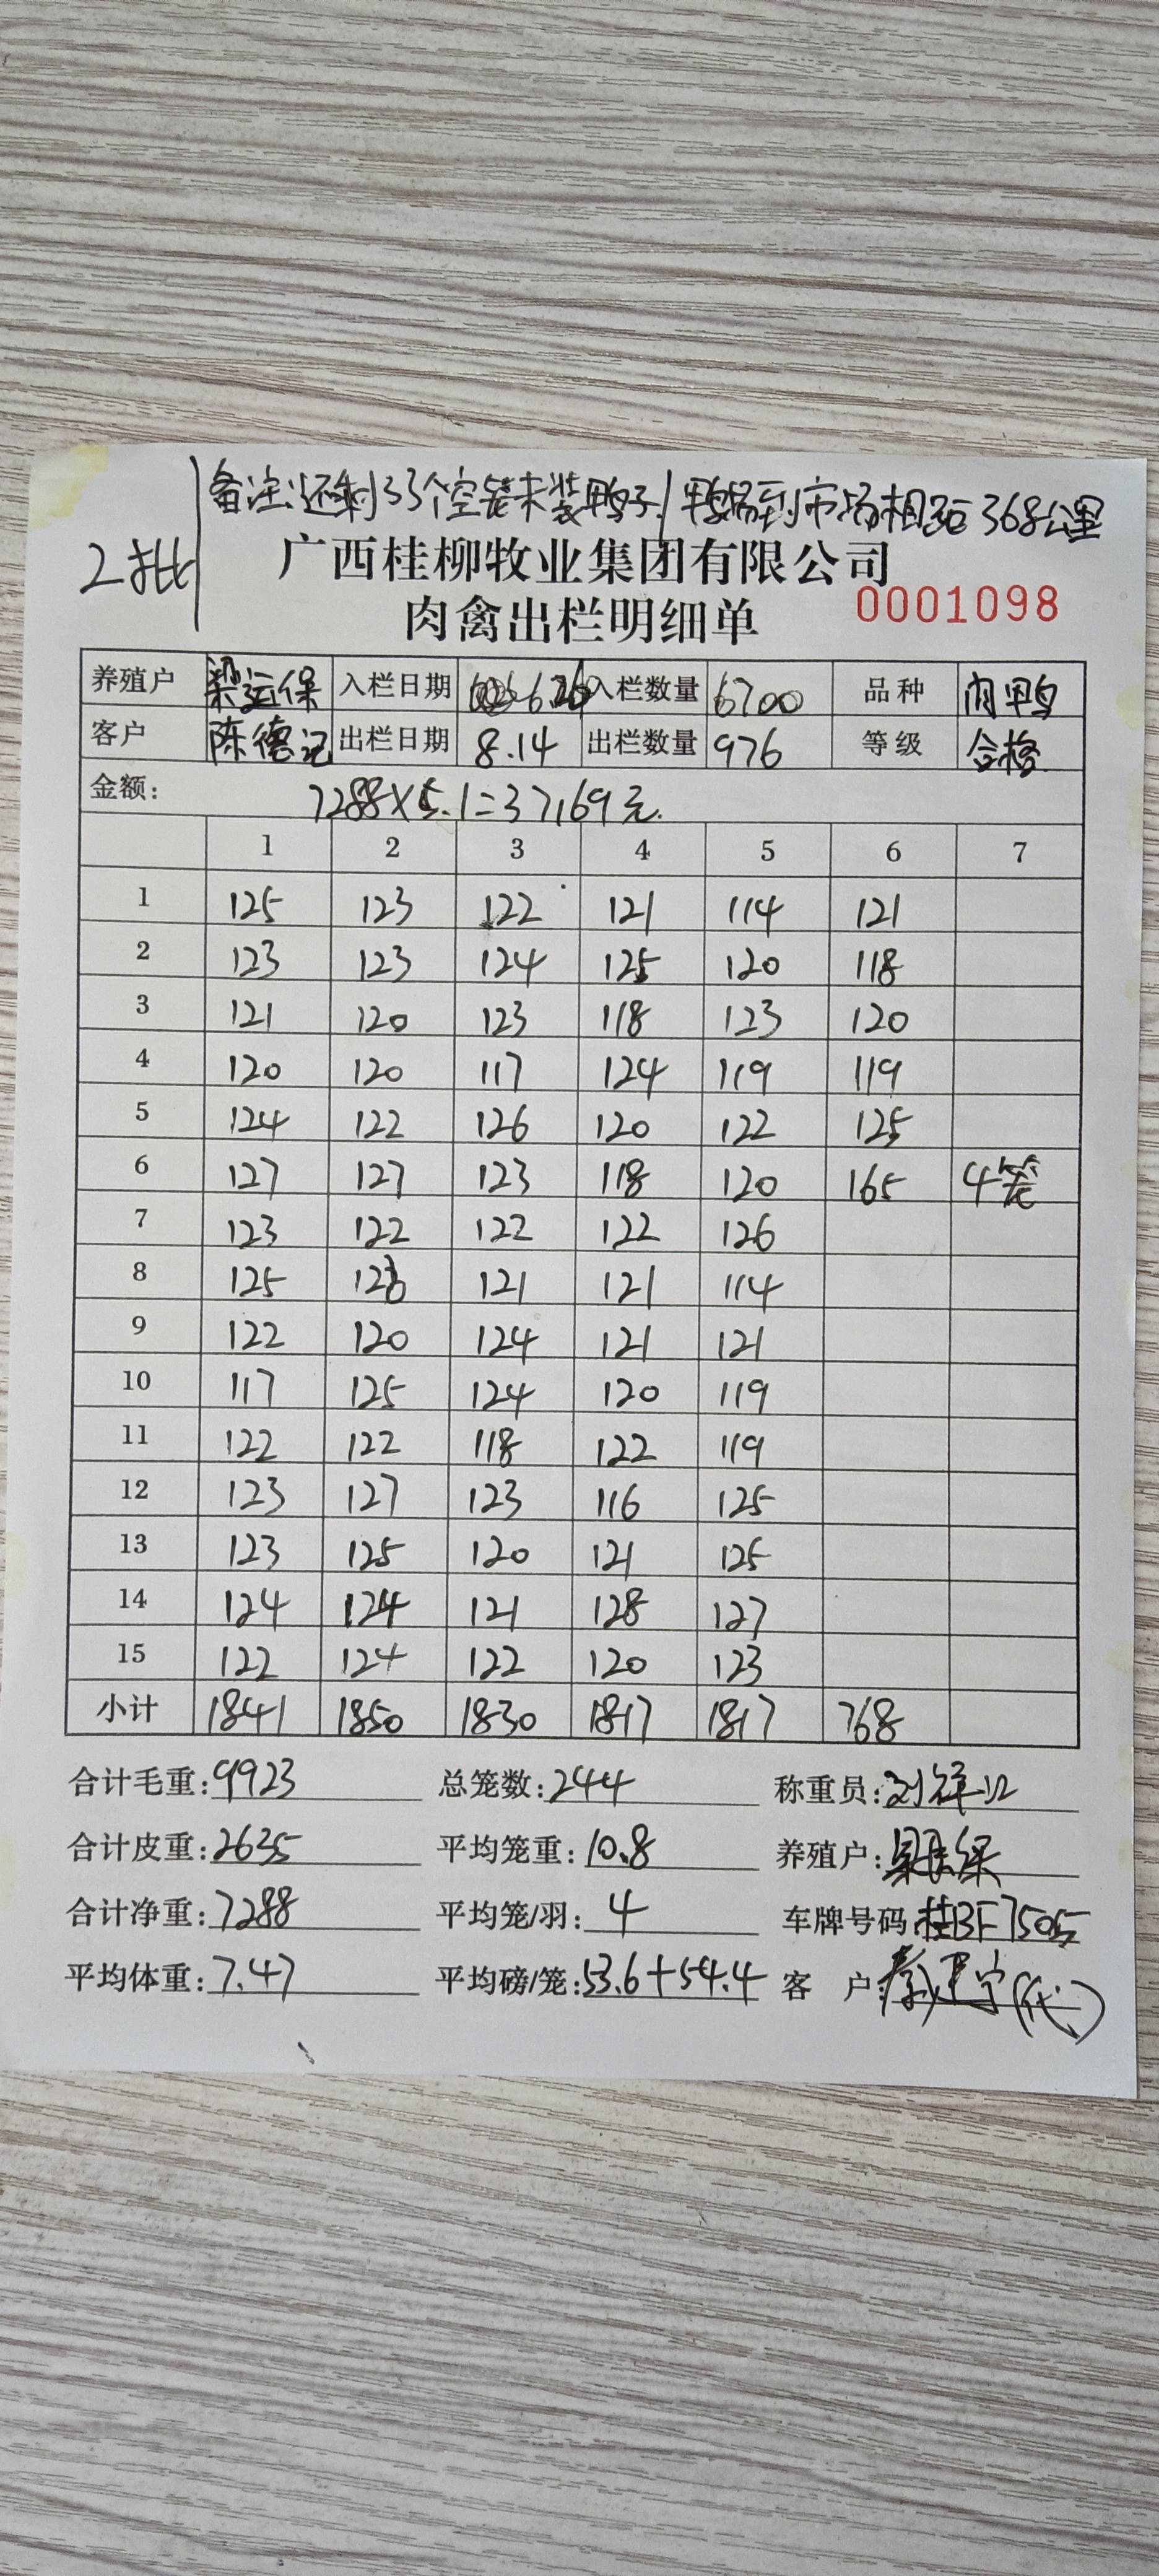 备注:还剩33个空笼未装鸭子/鸭场到市场相距368公里
2批
广西桂柳牧业集团有限公司
肉禽出栏明细单 0001098
养殖户 梁运保 入栏日期 6.26 入栏数量 6700 品种 肉鸭
客户 陈德记 出栏日期 8.14 出栏数量 976 等级 合格
金额: 7288×5.1=37169元
1 2 3 4 5 6 7
1 125 123 122 121 114 121
2 123 123 124 125 120 118
3 121 120 123 118 123 120
4 120 120 117 124 119 119
5 124 122 126 120 122 125
6 127 127 123 118 120 165 4笼
7 123 122 122 122 126
8 125 126 121 121 114
9 122 120 124 121 121
10 117 125 124 120 119
11 122 122 118 122 119
12 123 127 123 116 125
13 123 125 120 121 125
14 124 124 121 128 127
15 122 124 122 120 123
小计 1841 1850 1830 1817 1817 768
合计毛重:9923 总笼数:244 称重员:刘祥
合计皮重:2635 平均笼重:10.8 养殖户:梁运保
合计净重:7288 平均笼/羽:4 车牌号码 桂BF7505
平均体重:7.47 平均磅/笼:53.6+54.4 客户 (代)